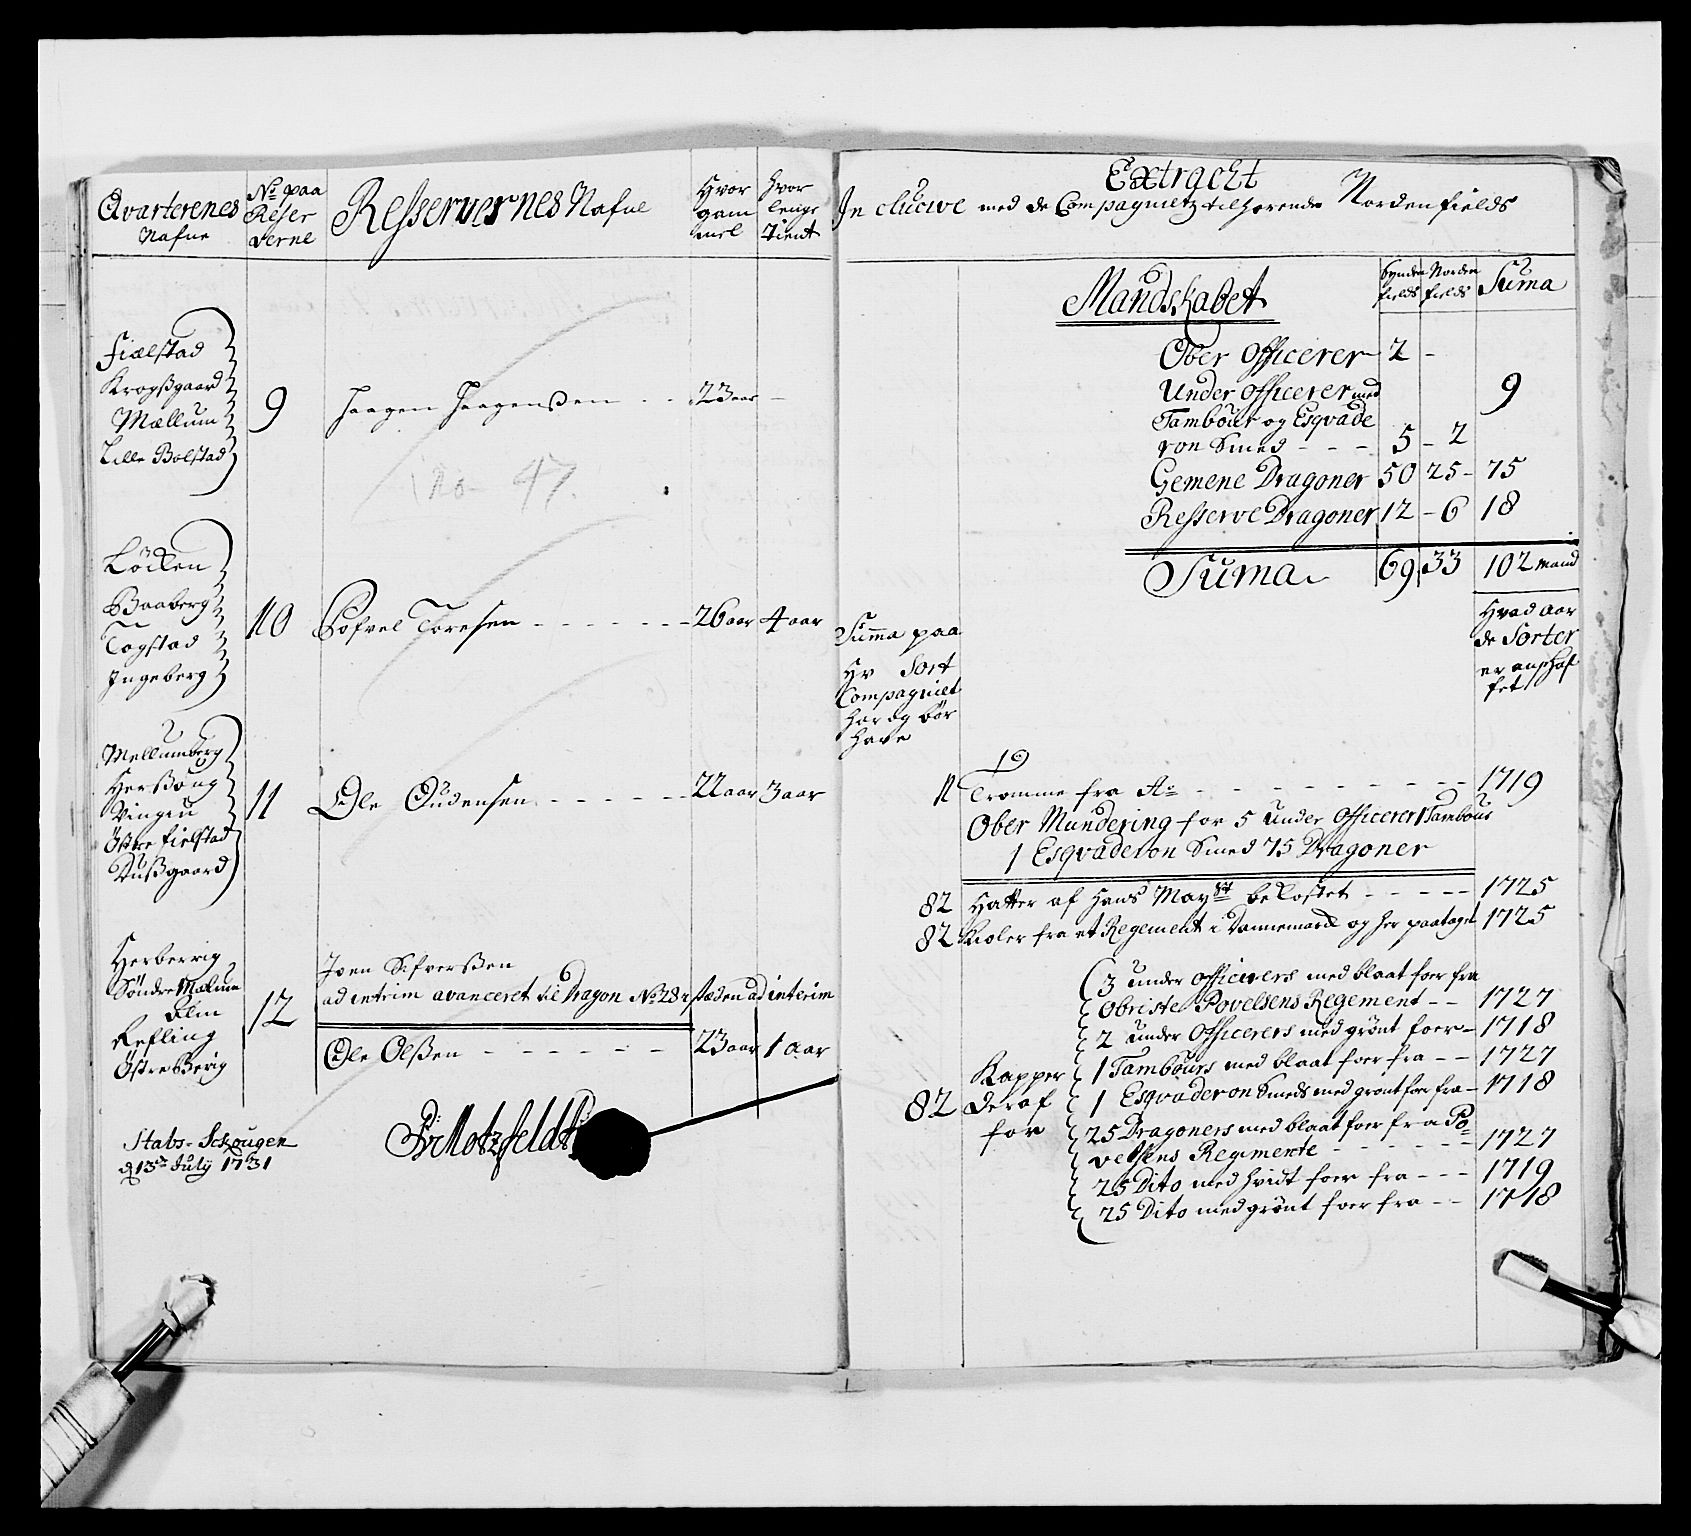 Qvarterenes
Nafne
No paa
Reser
verne
Resserver nes Nafne
Hvor
gam
mel
hvor
lenge
Tient
Fielstad
Krogsgaard
Mællum
Lille Bolstad
9
Haagen Haagensen - -
23 aar
-
No 47.
Löcken
Baaberg
Togstad
Ingeberg
10
Tosten
26 aar
4 aar
Mellumberg
Hersoug
Vingen
Östre fielstad
Dussgaard
11
Ole Oudensen - - - - -
22 aar
3 aar
Herberrig
Söndre Mælum
Elm
Refling
Östre Berig
12
Joen Sifversen
ad intrim avanceret til Dragon No 28 i stæden ad interim
Ole Olsen - - - - - -
23 aar
1 aar
Stabs-Schougen
d 13de July 1731
Motzfeldt
Extracht
In clucive med de Compagnietz tilhørende Nordenfields
Mandskabet
Synden
fields
Norden
fields
Suma
Ober Officerer 2 -
Under Officerer med
Tambour og Esqvade
ron Smed - - - 5 - 2
9
Gemene Dragoner 50 25 - 75
Resserve Dragoner 12 - 6 18
Suma 69 33 102 mand
Summa paa
Hv Sort
Compagniet
har og bör
have
Hvad aar
de Sorter
er anschaf
fet
19
11 Tromme fra Ao - - - - - - - - 1719
Ober Mundering for 5 under Officerer 1 Tambour
1 Esqvaderon Smed 75 Dragoner
82 Hatter af Hans Mayst bekostet - - - - - 1725
82 Kioler fra et Regement i Dannemarck og her paataget 1725
82
Kapper
Deraf
for
3 under officerers med blaat foer fra
Obriste Povelsens Regement - - 1727
2 under Officerers med grønt foer - 1718
1 Tambours med blaat foer fra - - 1727
1 Esqvaderon Smeds med grønt foer fra - 1718
25 Dragoners med blaat foer fra Po-
velsens Regimente - - - - - 1727
25 Dito med hvidt foer fra - - - 1719
25 Dito med grønt foer fra - - 1718